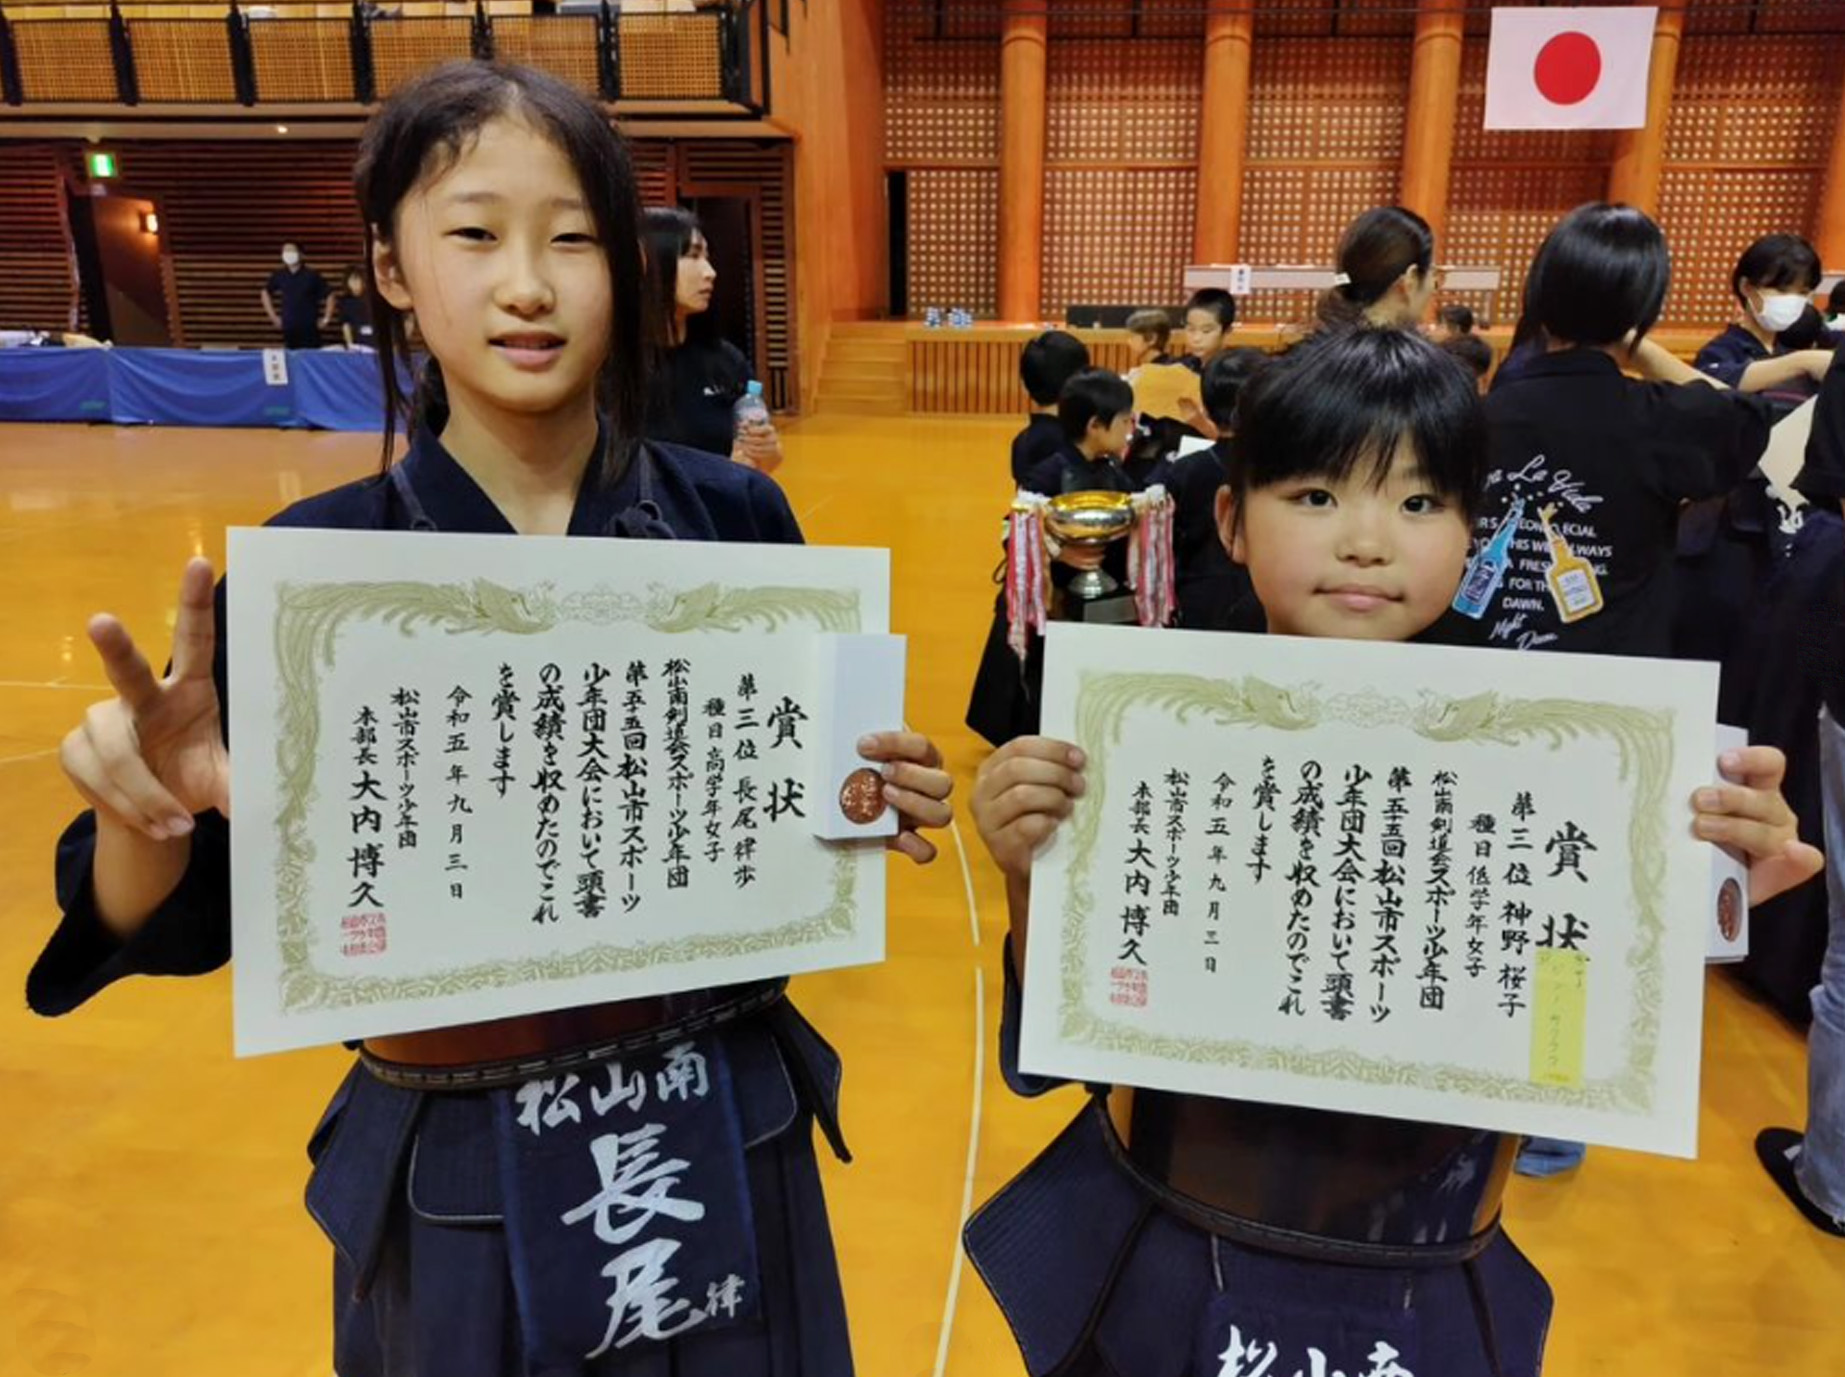 賞状
第三位 長尾律歩
種目 高学年女子
松山南剣道会スポーツ少年団
第五十五回松山市スポーツ
少年団大会において頭書
の成績を収めたのでこれ
を賞します
令和五年九月三日
松山市スポーツ少年団
本部長 大内博久
松山南
長尾
律
賞状
第三位 神野桜子
種目 低学年女子
松山南剣道会スポーツ少年団
第五十五回松山市スポーツ
少年団大会において頭書
の成績を収めたのでこれ
を賞します
令和五年九月三日
松山市スポーツ少年団
本部長 大内博久
松山南
La Vida
FOR TH
DAWN.